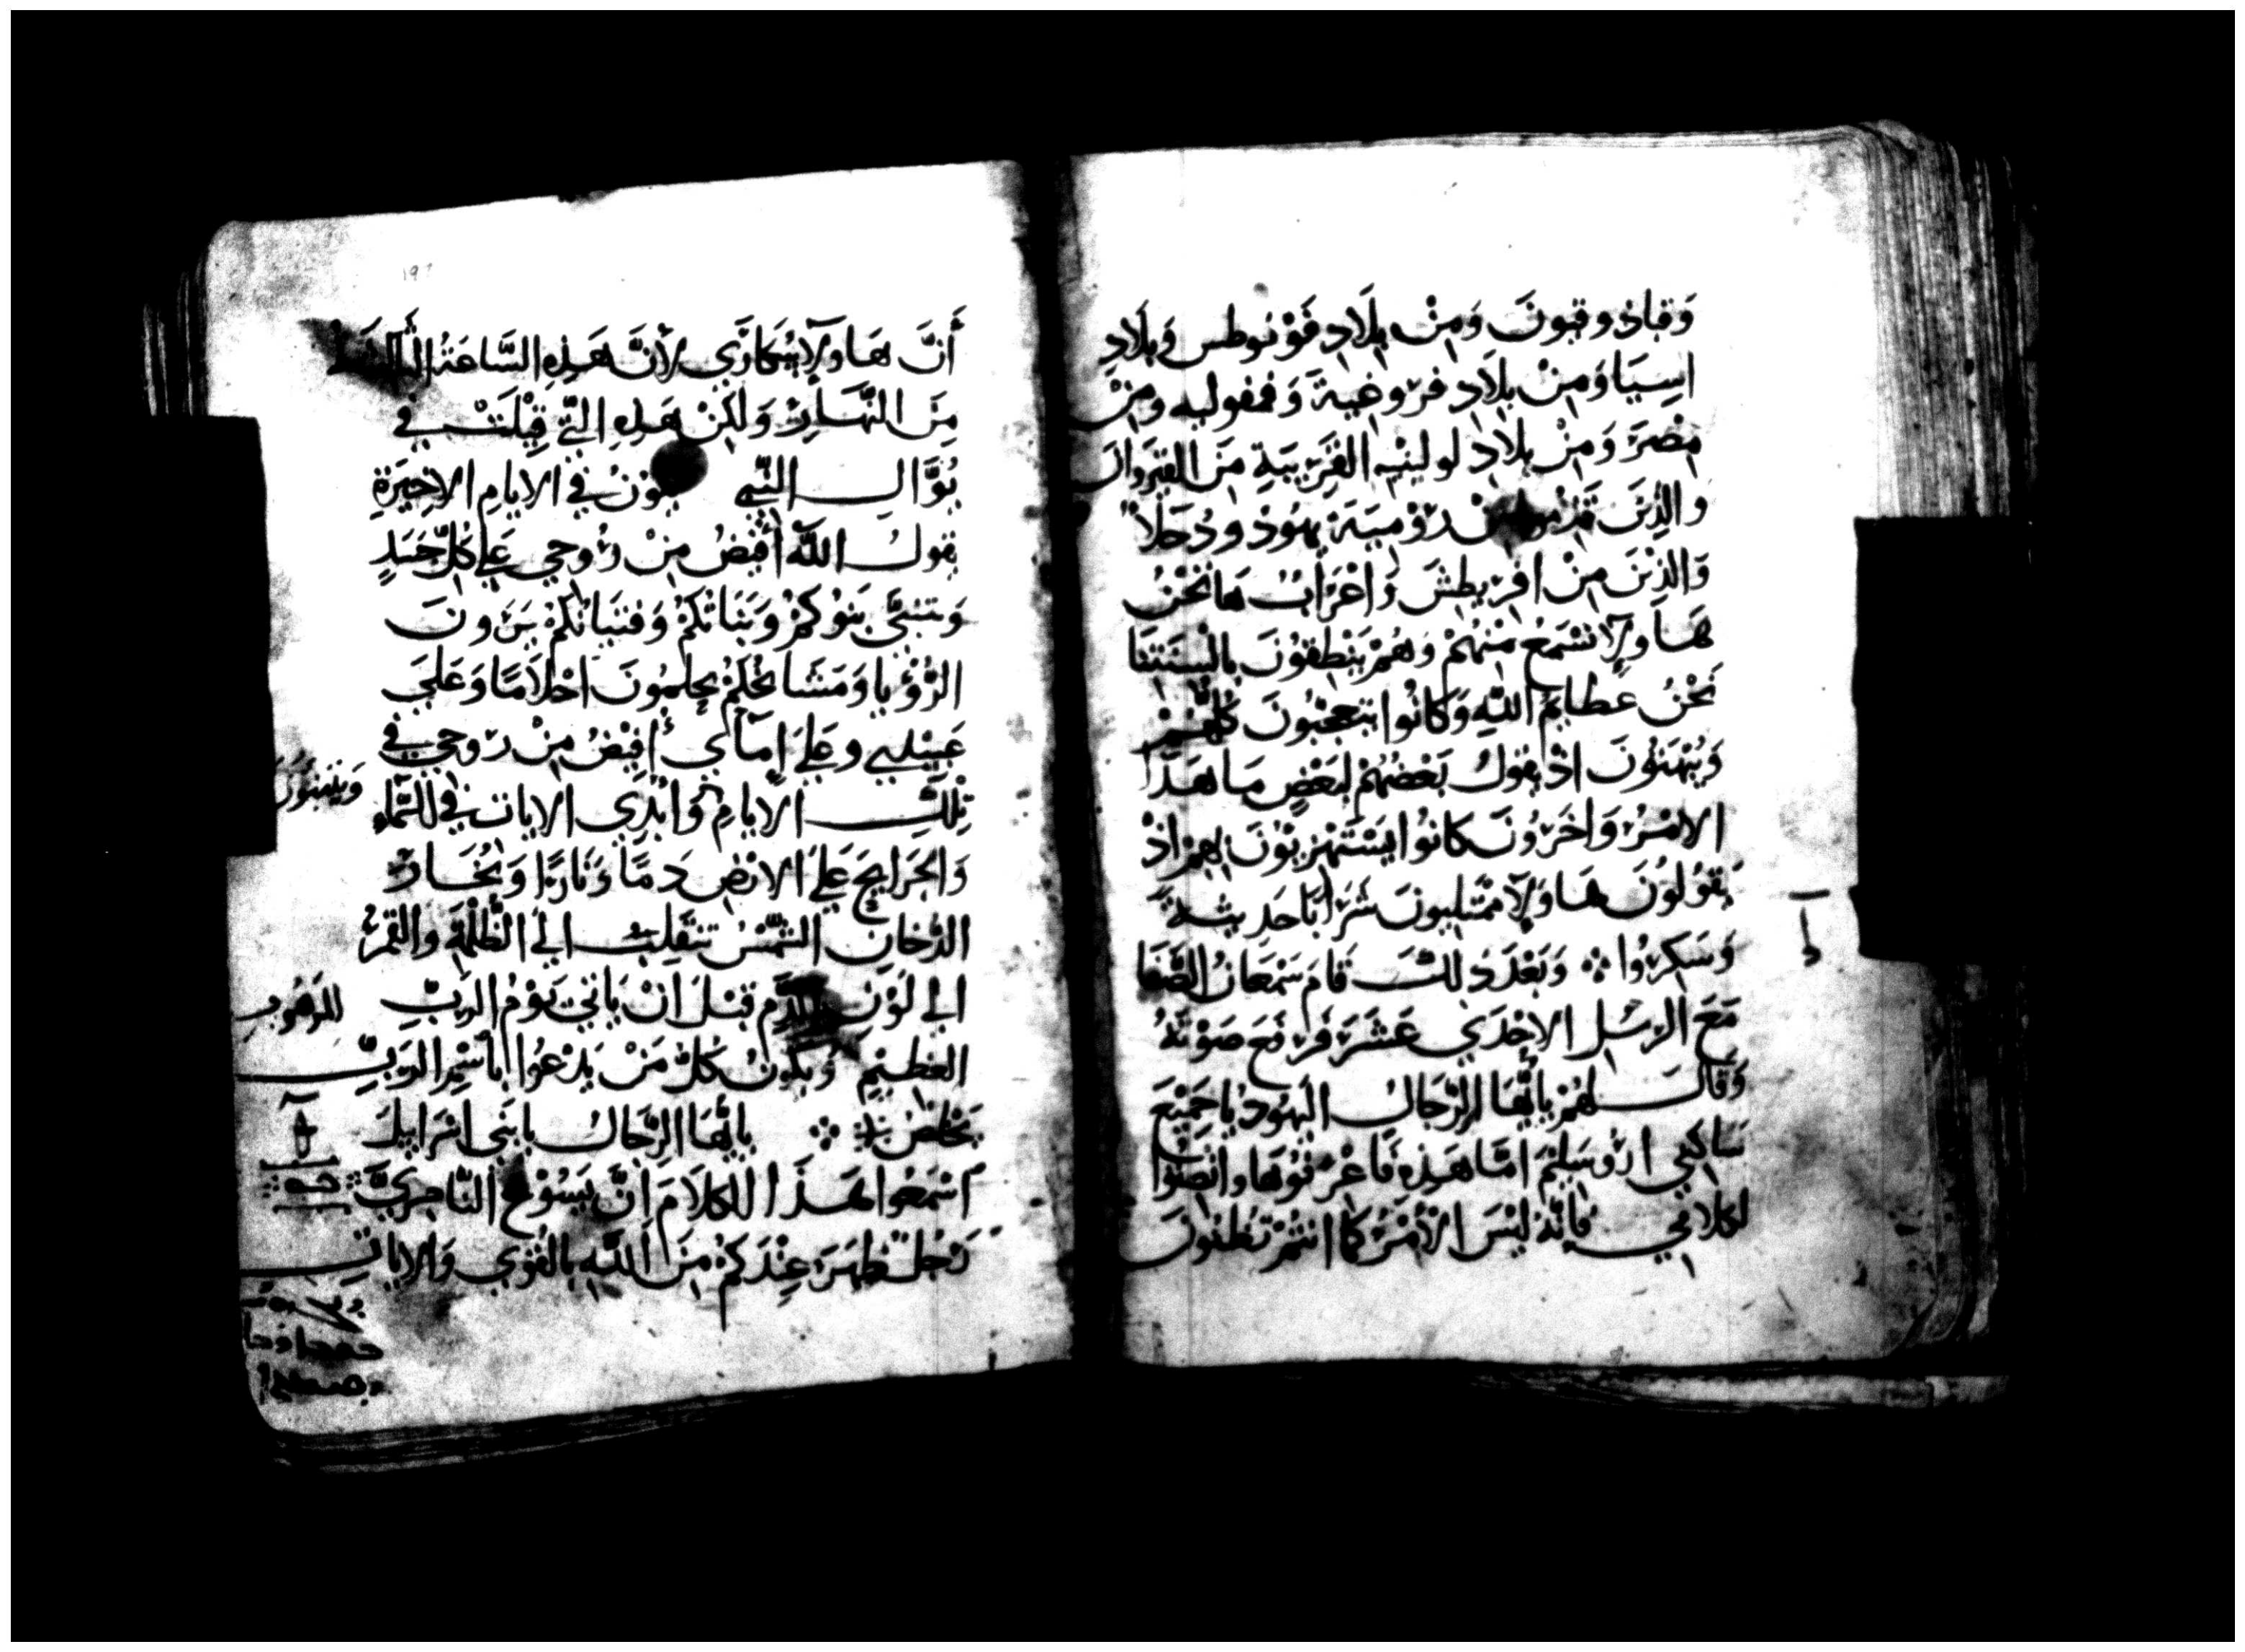 وَقباذ وقبونَ وَمِنْ بِلَادِ فَوْنوطس وَبلَادِ
اسِيَا وَمِنْ بلَادِ فرُوغيةَ وَفمفوليه ومِنْ
مِصْرَ وَمِنْ بلادِ لولينيه القَرِيبَةِ مِنَ القيروان
والذِينَ رُوْميَةَ يهُودْ ودُخَلاً
وَالذِيْنَ مِنْ اقريطِشَ وَاعْرَابُ هَا نَحْنُ
هَاولَآ نسْمَعُ مِنْهُمْ وَهُمْ يَنْطِقُونَ بِالْسِنَتِنَا
نَحْنُ عظايمَ اللهِ وَكانُوا يتعجبُونَ كُلُّهُمْ
وَيُبْهَتُونَ اذْ يقولُ بَعْضُهُمْ لِبَعْضٍ مَا هَذَا
الامْرُ وَاخَرُونَ كانُوا يَسْتَهْزِيُونَ بِهِمْ اذْ
يَقُولُونَ هَاولَآ مُمْتَليونَ شَرَابًا حَديثه
وَسَكِرُوا ܀ وَبَعْدَ ذلكَ قامَ سَمْعَانُ الصَّفَا
مَعَ الرسُلِ الاحْدَي عَشَرَ فَرَفعَ صَوْتَهُ
وَقالَ لهُمْ يأَيُّهَا الرِّجَالُ اليَهُودُ يا جَمِيْعَ
سَاكِني ارُوسَلِيمَ امَّا هَذِهِ فَاعْرفُوهَا وانْصِتُوا
لكلامِي فَإنَّهُ ليْسَ الأمْرُ كما انتُمْ تظُنونَ
أَنَّ هَاولَآ سُكَارَي لأَنَّ هَذِهِ السَّاعَةُ الثالثة
مِنَ النَّهَارِ وَلكِنْ هَذِهِ التَّي قِيْلَتْ في
يُوَّال النَّبي يكوْنُ في الايامِ الاخِيرَةِ
يقولُ اللهَ أفيضُ مِنْ رُوحِي عَلي كُلِّ جَسَدٍ
وَيتنبَّى بَنوُكمْ وَبَنَاتُكمْ وَفتيَانُكمْ يَرَونَ
الرُّؤيا وَمَشَايخُكمْ يحلِمُونَ احْلَامًا وَعَلَي
عَبيْدِيي وعَلَي إمآي أفِيْضُ مِنْ رُوحِي في
تِلكَ الايامِ وَابْدِي الايات في السَّماءِ
وَيتنبئونَ
وَالجَرايحَ عَلي الارْضِ دَمًا وَنَارًا وَبُخَارُ
الدُّخانِ الشَّمْسُ تنقَلِبُ الي الظُّلْمَةِ وَالقَمَرُ
الي لَوْنِ الدَّمِ قبْلَ أنْ يَاتي يَوْمُ الرَبِّ المَرْهُوب
العَظيْمِ وَيَكونُ كلُّ مَنْ يَدْعُوا باسْمِ الرَبِّ
يَخلصُ ܀ يايُّهَا الرِّجَالُ يا بَني اسْرَايلَ
اسْمَعُوا هَذَا الكلَامَ انَّ يَسُوْعَ النَّاصِريَّ
رَجُلٌ ظهَرَ عِنْدَكمْ مِنَ اللهِ بالقُوَي وَالاياتِ